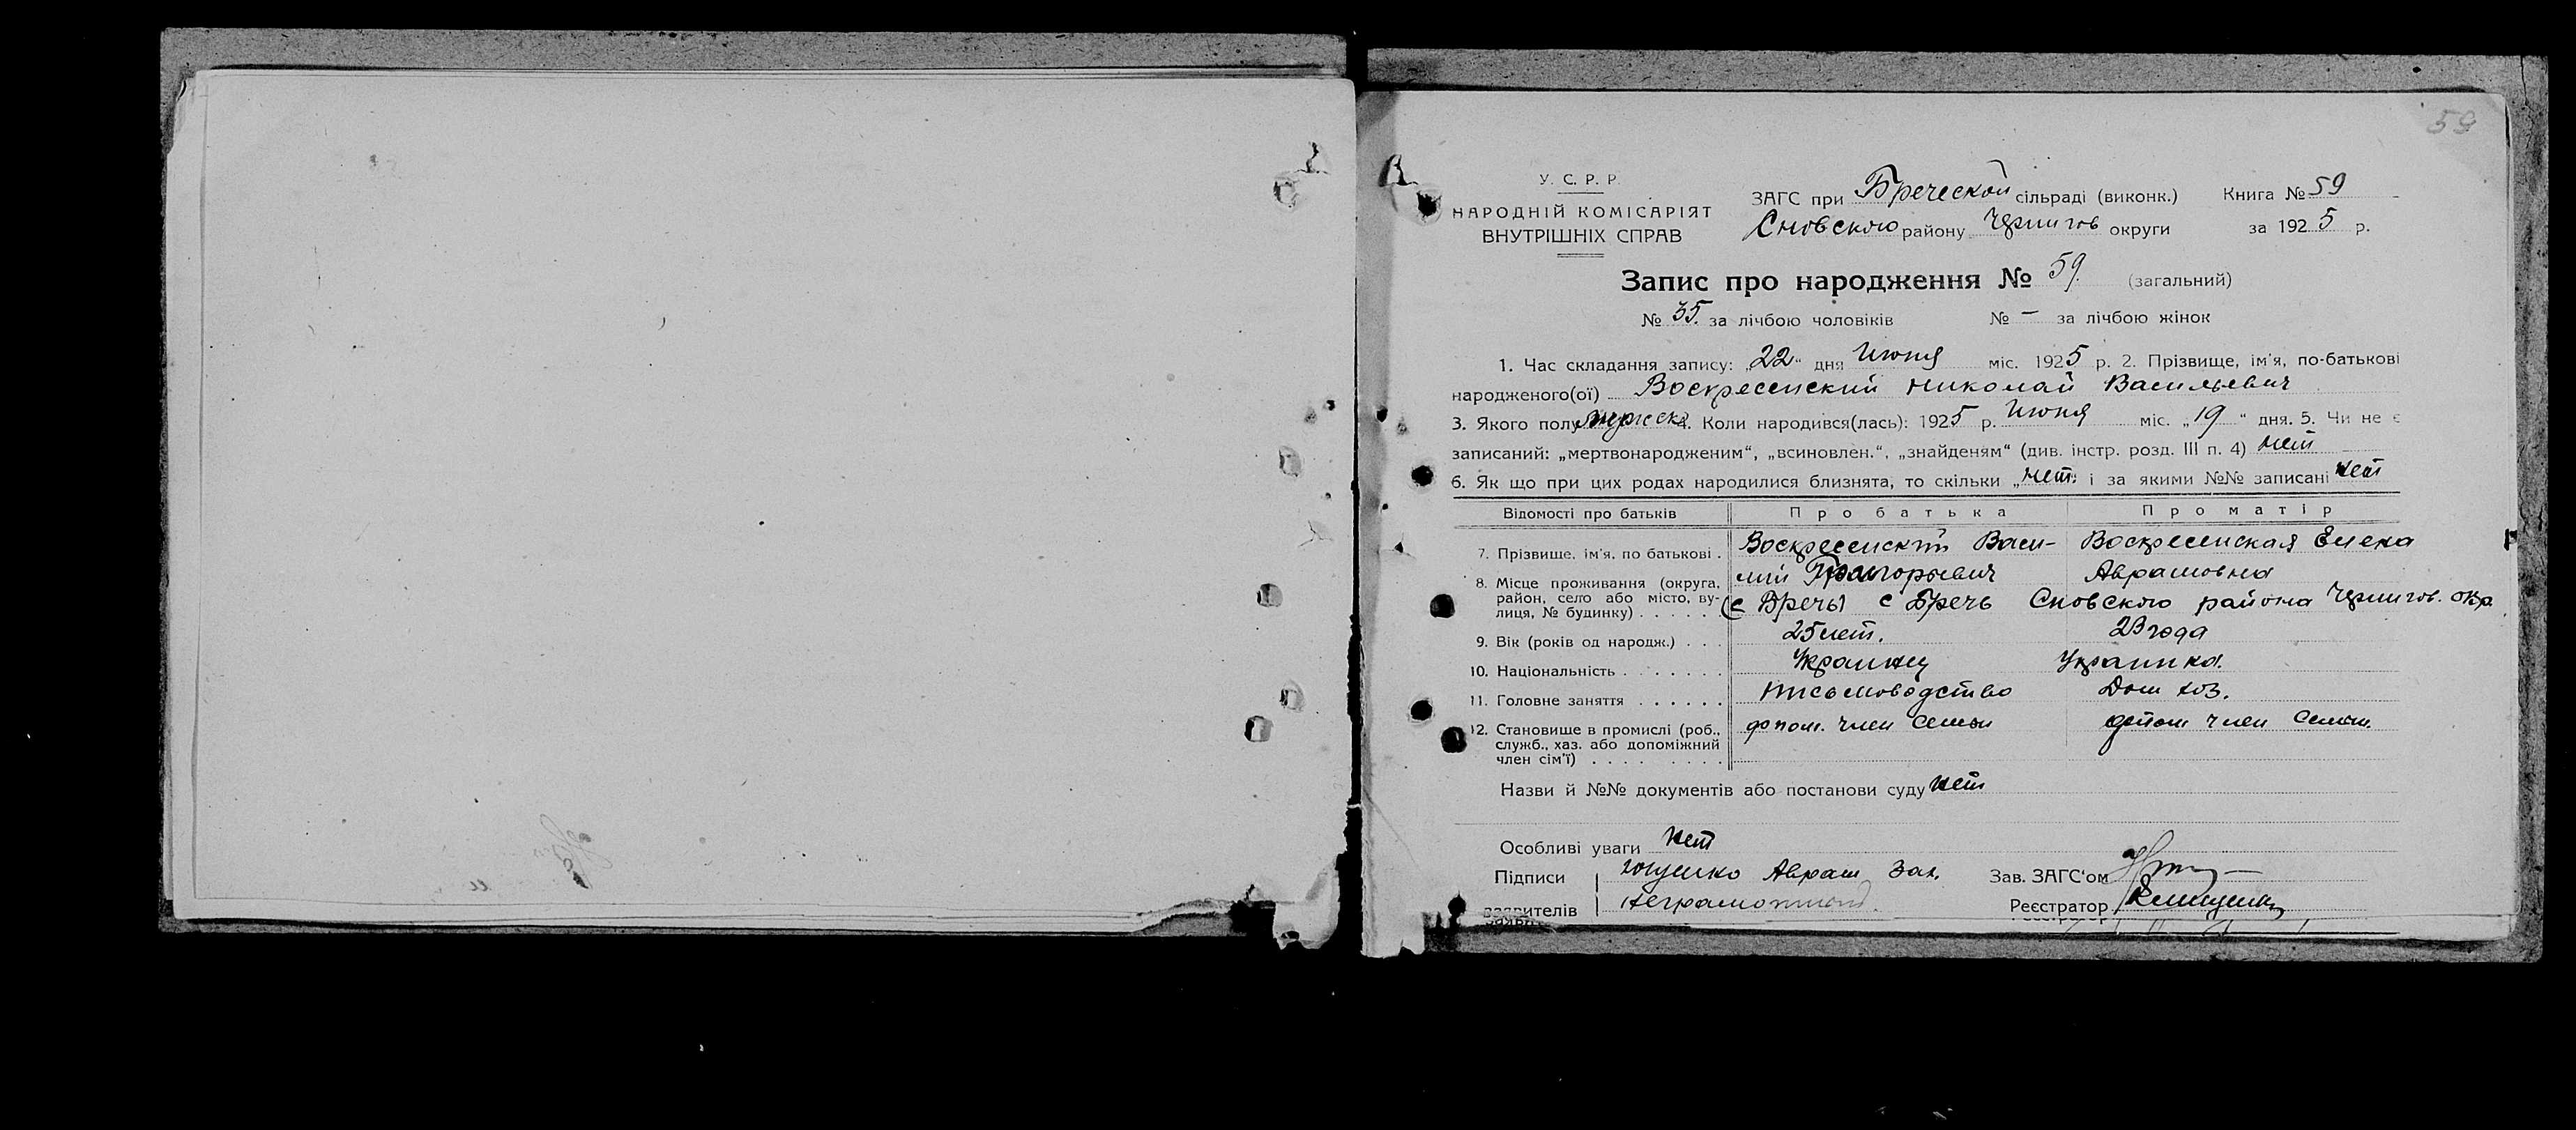 59
У. С. Р. Р.
НАРОДНІЙ КОМІСАРІЯТ
ВНУТРІШНІХ СПРАВ
ЗАГС при Бреческой сільраді (виконк.) Книга № 59
Сновского району Чернигов округи за 1925 р.
Запис про народження № 59. (загальний)
№ 35. за лічбою чоловіків № — за лічбою жінок
1. Час складання запису: „22“ дня Июня міс. 1925 р. 2. Прізвище, ім'я, по-батькові
народженого(ої) Воскресенский Николай Васильевич
3. Якого полу мужск. 4. Коли народився(лась): 1925 р. Июня міс. „19“ дня. 5. Чи не є
записаний: „мертвонародженим“, „всиновлен.“, „знайденям“ (див. інстр. розд. III п. 4) нет
6. Як що при цих родах народилися близнята, то скільки „нет“ і за якими №№ записані нет
Відомості про батьків Про батька Про матір
7. Прізвище, ім'я, по батькові . Воскресенский Васи- Воскресенская Елена
лий Григорьевич Аврамовна
8. Місце проживання (округа,
район, село або місто, ву-
лиця, № будинку) . . . . . . (с Бречь) с Бречь Сновского района Чернигов. окр.
9. Вік (років од народж.) . . . 25 лет. 23 года
10. Національність . . . . . . . Украинец Украинка.
11. Головне заняття . . . . . . письмоводство Дом хоз.
12. Становище в промислі (роб., допом. член семьи допом член семьи.
служб., хаз. або допоміжний
член сім'ї) . . . . . . . .
Назви й №№ документів або постанови суду нет
Особливі уваги нет
Підписи Аврам Зах. Зав. ЗАГС'ом
заявителів неграмотной. Реєстратор